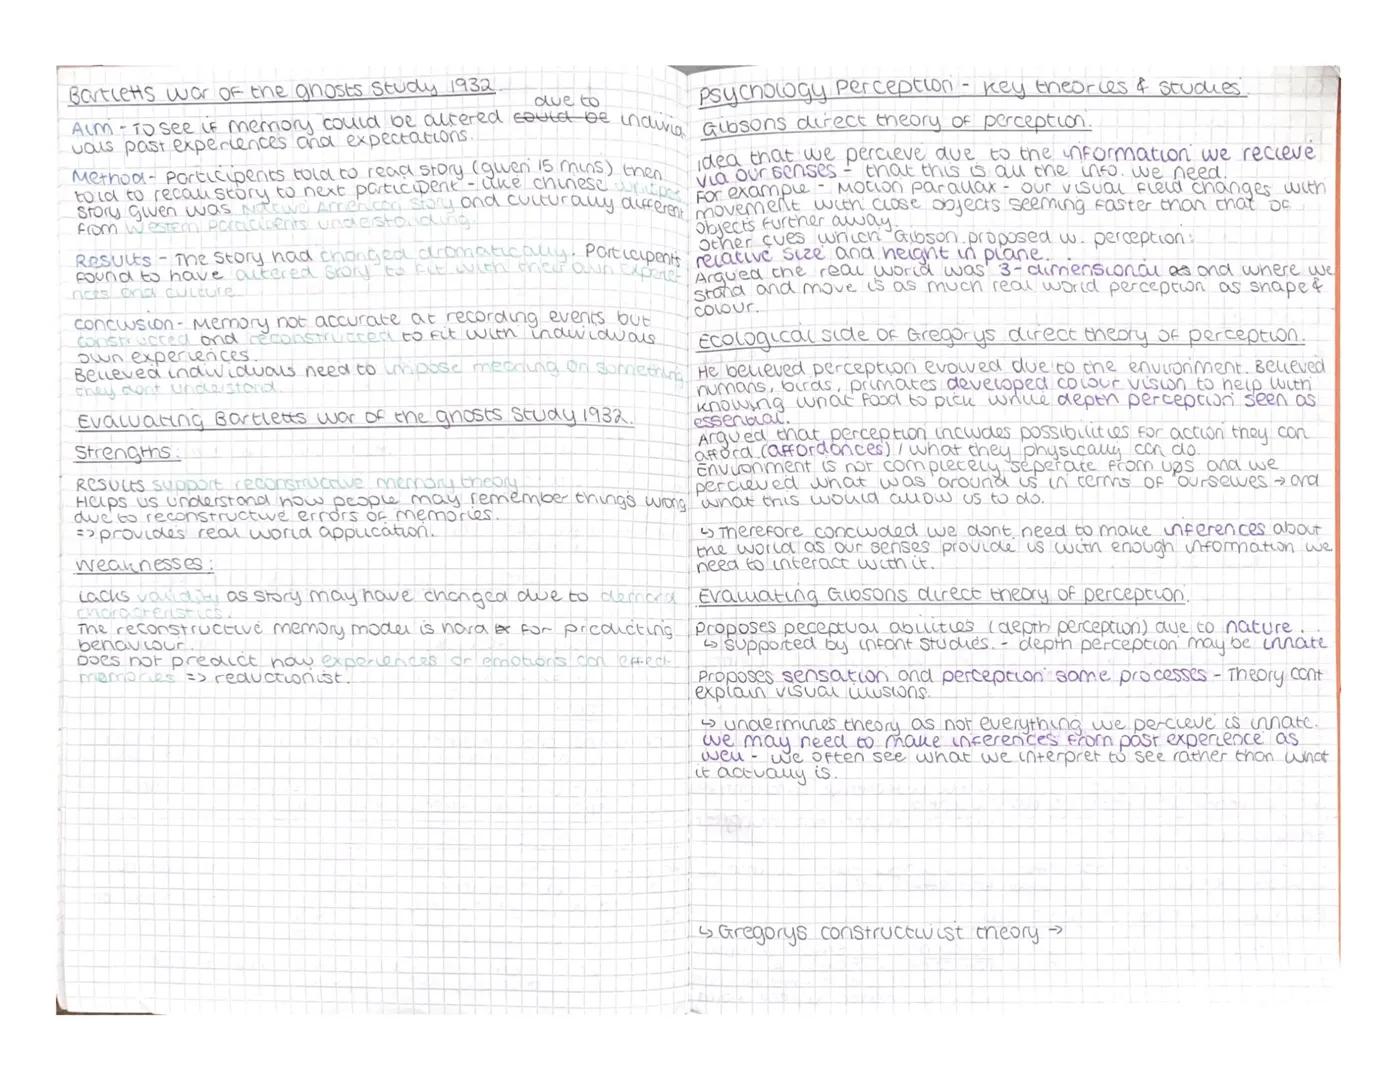 Bartletts war of the ghosts study 1932
Aim - To see if memory could be altered could be due to individ
uals past experiences and expectations.
Method - Participents told to read story (given 15 mins) then
told to recall story to next participent - like chinese
story given was Native American story and culturally different
from Western Paricipents understanding.
Results - The story had changed dramatically. Participents
found to have altered story to fit with their own experie
nces and culture
conclusion - Memory not accurate at recording events but
constructed and reconstructed to fit with individuals
own experiences.
Believed individuals need to impose meaning on something
they dont understand.
Evaluating Bartletts war of the ghosts study 1932.
Strengths:
Results support reconstructive memory theory
Helps us understand how people may remember things wrong
due to reconstructive errors of memories.
=> provides real world application.
Weaknesses:
Lacks validity as story may have changed due to demand
characteristics.
The reconstructive memory model is hard for predicting
behaviour.
Does not predict how experiences or emotions can effect
memories => reductionist.
Psychology Perception - key theories & studies.
Gibsons direct theory of perception.
idea that we percieve due to the information we recieve
via our senses - that this is all the info. we need.
For example - Motion parallax - our visual field changes with
movement with close objects seeming faster than that of
objects further away.
Other cues which Gibson proposed w. perception:
relative size and height in plane.
Argued the real world was 3-dimensional as and where we
stand and move is as much real world perception as shape &
colour.
Ecological side of Gregorys direct theory of perception.
He believed perception evolved due to the environment. Believed
humans, birds, primates developed colour vision to help with
knowing what food to pick while depth perception seen as
essential.
Argued that perception includes possibilities for action they can
afford (affordances) / what they physically can do.
Environment is not completely seperate from ups and we
percieved what was around us in terms of ourselves → and
what this would allow us to do.
↳ Therefore concluded we dont need to make inferences about
the world as our senses provide us with enough information we
need to interact with it.
Evaluating Gibsons direct theory of perception.
Proposes peceptual abilities (depth perception) due to nature.
↳ supported by infant studies. - depth perception may be innate
Proposes sensation and perception same processes - Theory cant
explain visual illusions.
↳ undermines theory as not everything we percieve is innate.
We may need to make inferences from past experience as
well - we often see what we interpret to see rather than what
it actually is.
↳ Gregorys constructivist theory →